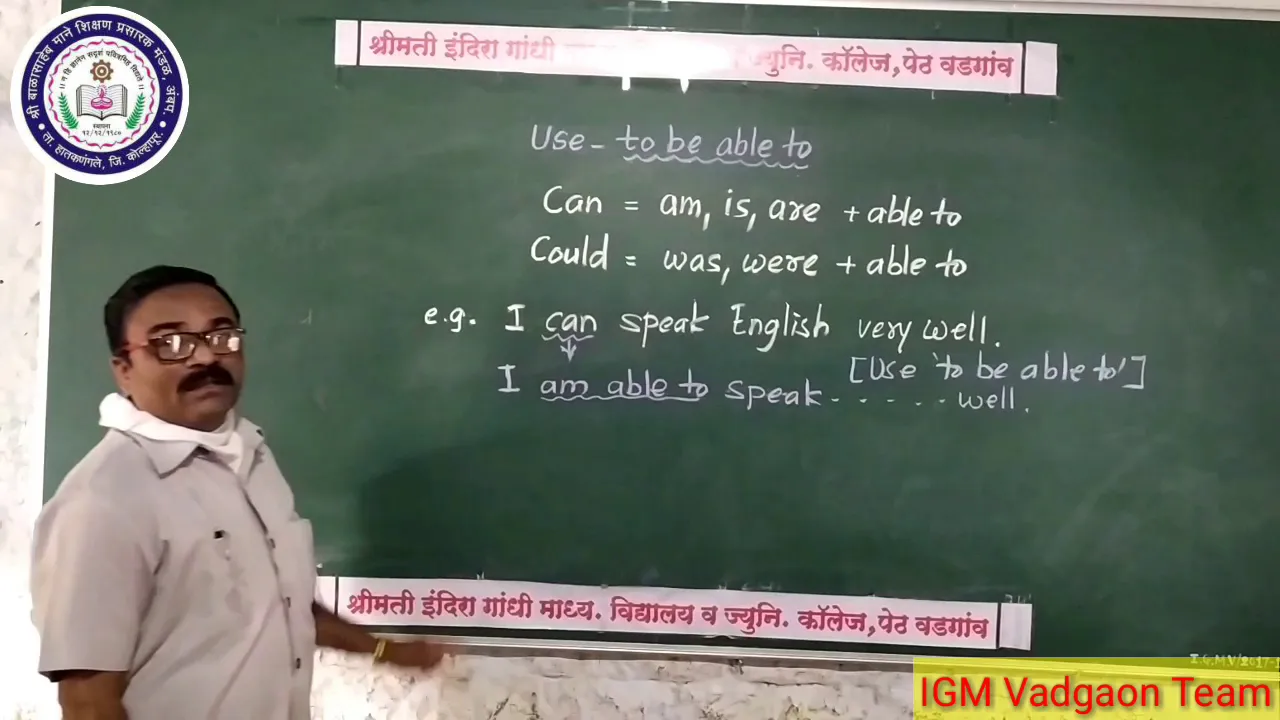 श्री बाळासाहेब माने शिक्षण प्रसारक मंडळ, अंबप.
न हि ज्ञानेन सदृशं पवित्रमिह विद्यते
स्थापना
१२/१२/१९८०
ता. हातकणंगले, जि. कोल्हापूर.
श्रीमती इंदिरा गांधी ज्युनि. कॉलेज,पेठ वडगांव
Use - to be able to
Can = am, is, are + able to
Could = was, were + able to
e.g. I can speak English very well.
[Use 'to be able to']
I am able to speak - - - - - well.
श्रीमती इंदिरा गांधी माध्य. विद्यालय व ज्युनि. कॉलेज,पेठ वडगांव
IGM Vadgaon Team